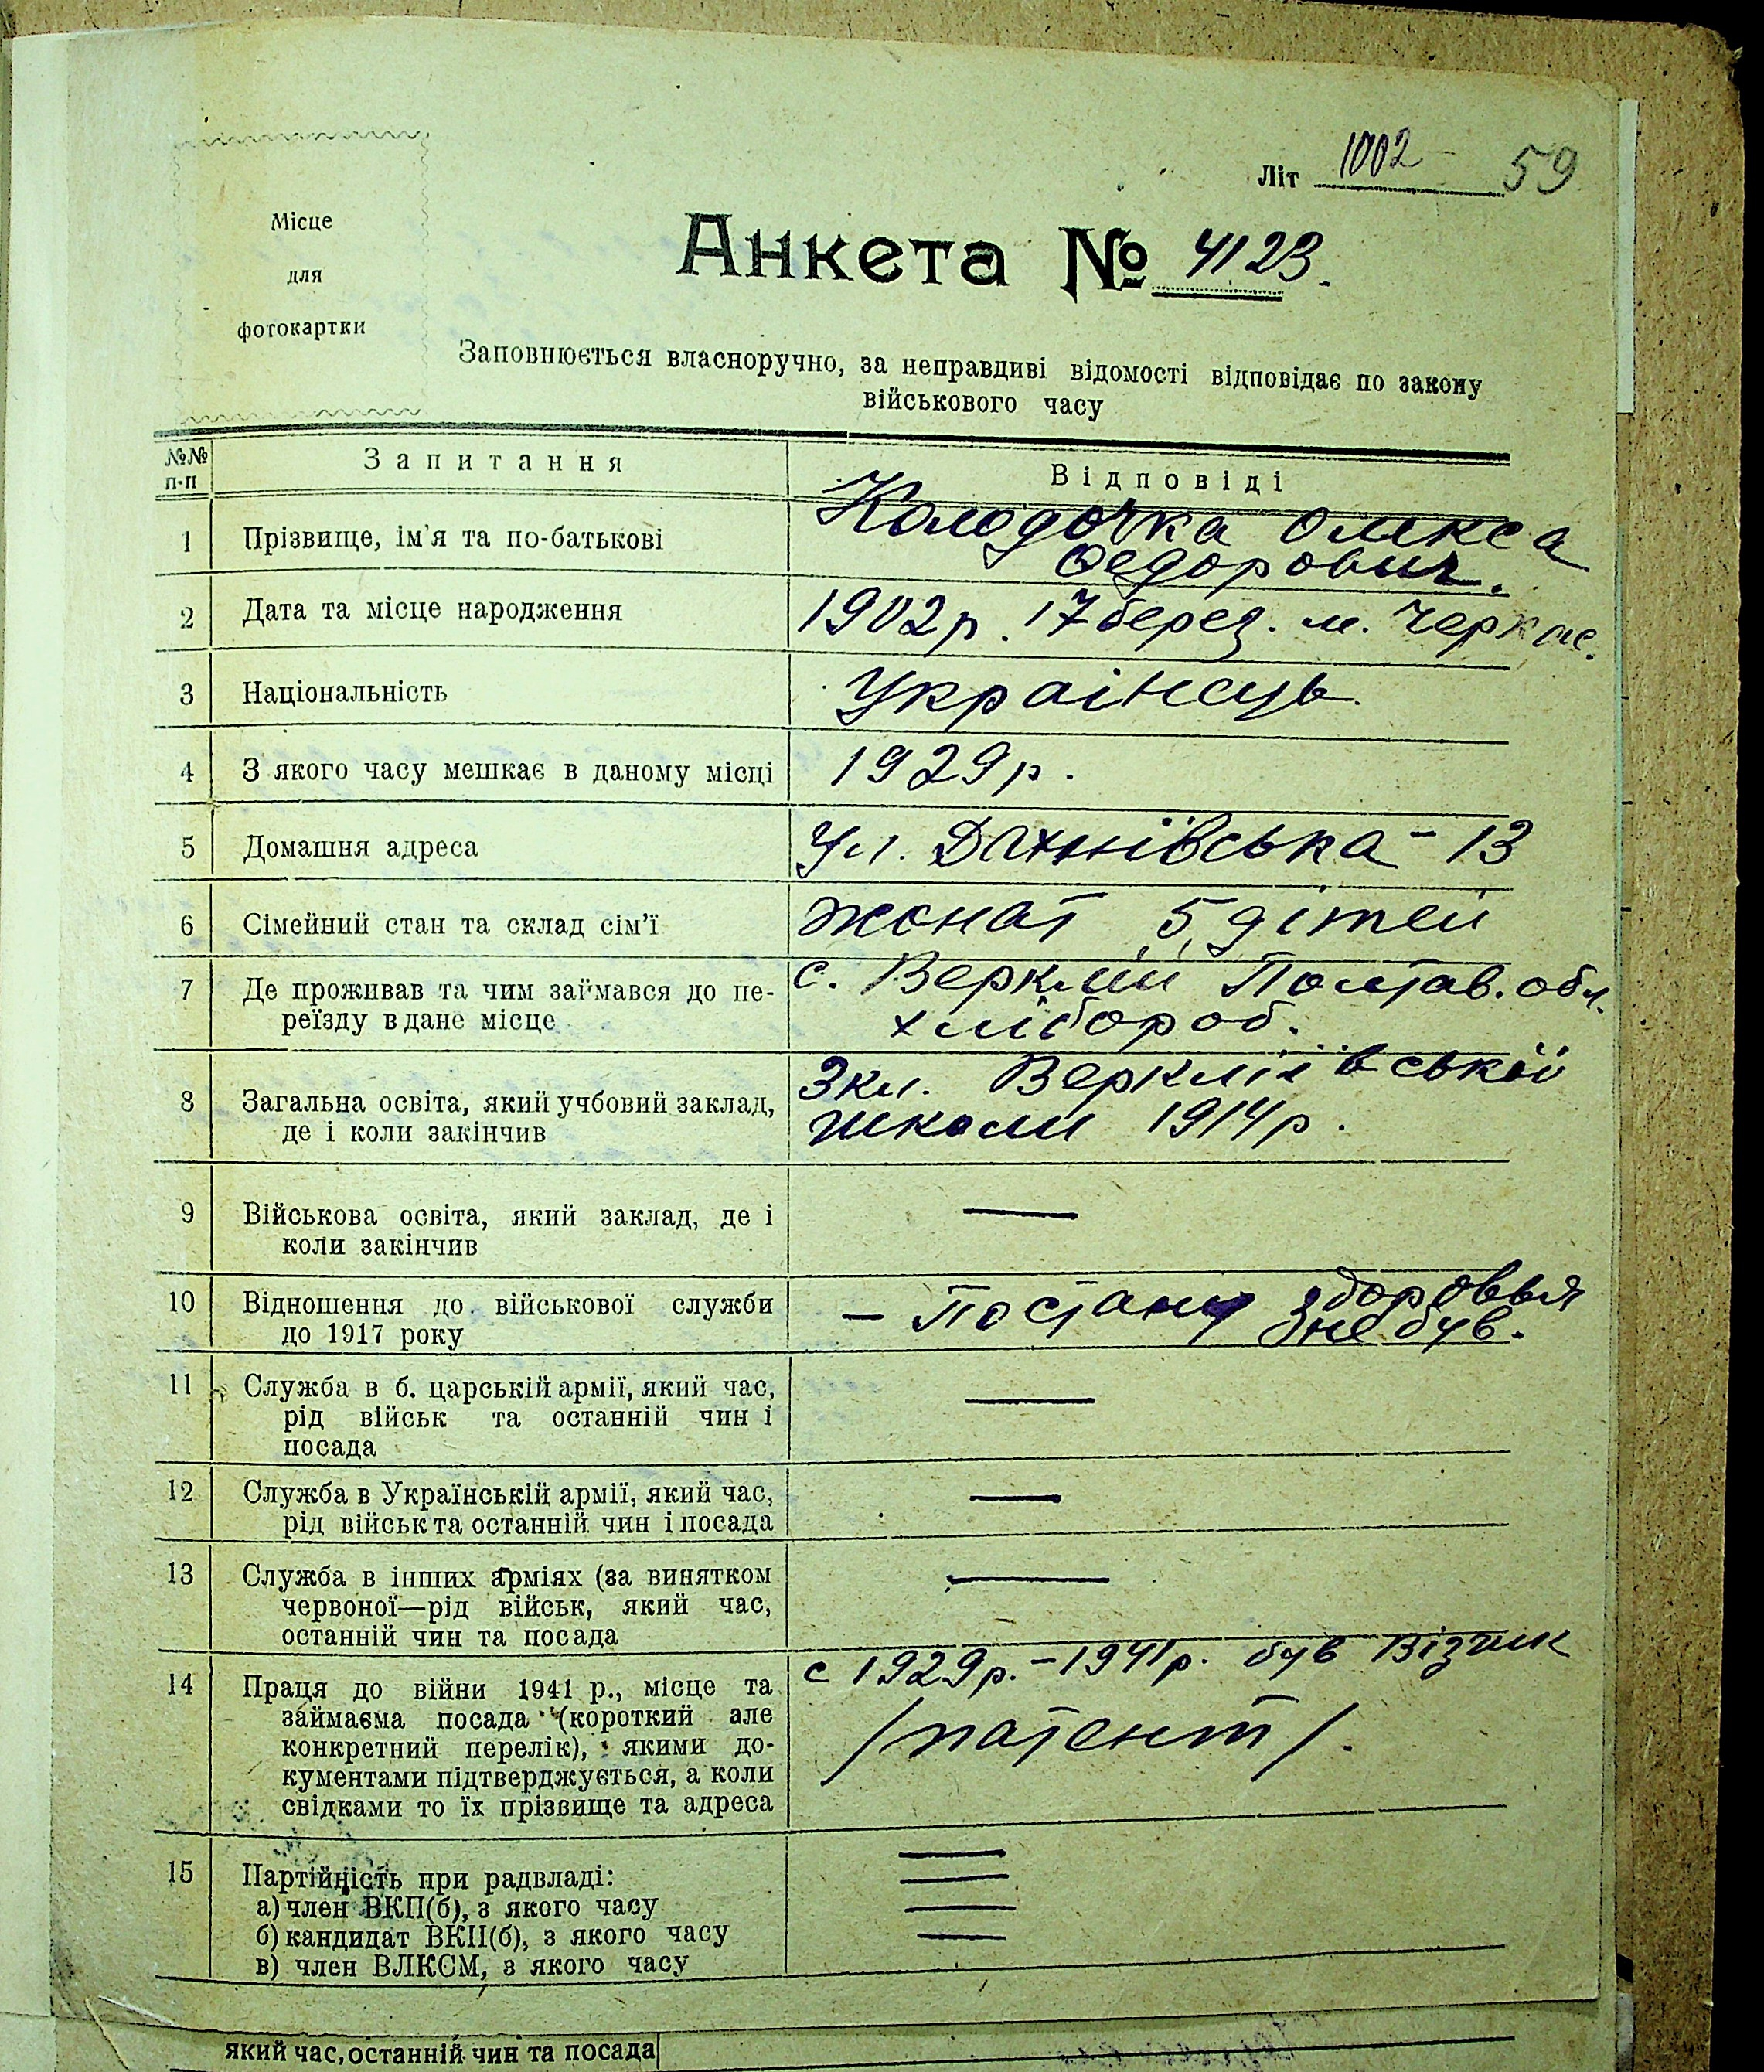 Літ 1002 59
Місце
для
фотокартки
Анкета № 4123.
Заповнюється власноручно, за неправдиві відомості відповідає по закону
військового часу
№№
п-п
Запитання
Відповіді
1 Прізвище, ім'я та по-батькові
Колодочка Олекса
Федорович.
2 Дата та місце народження
1902р. 17 берез. м. Черкас.
3 Національність
Українець.
4 З якого часу мешкає в даному місці
1929р.
5 Домашня адреса
Ул. Дахнівська - 13
6 Сімейний стан та склад сім'ї
жонат 5 дітей
7 Де проживав та чим займався до пе-
реїзду в дане місце
с. Вереміївка Полтав. обл.
хлібороб.
8 Загальна освіта, який учбовий заклад,
де і коли закінчив
3 кл.
школи 1914р.
9 Військова освіта, який заклад, де і
коли закінчив
—
10 Відношення до військової служби
до 1917 року
— По стану здоровья
не був.
11 Служба в б. царській армії, який час,
рід військ та останній чин і
посада
—
12 Служба в Українській армії, який час,
рід військ та останній чин і посада
—
13 Служба в інших арміях (за винятком
червоної—рід військ, який час,
останній чин та посада
—
14 Праця до війни 1941 р., місце та
займаєма посада (короткий але
конкретний перелік), якими до-
кументами підтверджується, а коли
свідками то їх прізвище та адреса
с 1929р.-1941р. був Візчик
/патент/.
15 Партійність при радвладі:
а) член ВКП(б), з якого часу
б) кандидат ВКП(б), з якого часу
в) член ВЛКСМ, з якого часу
—
—
—
—
який час, останній чин та посада